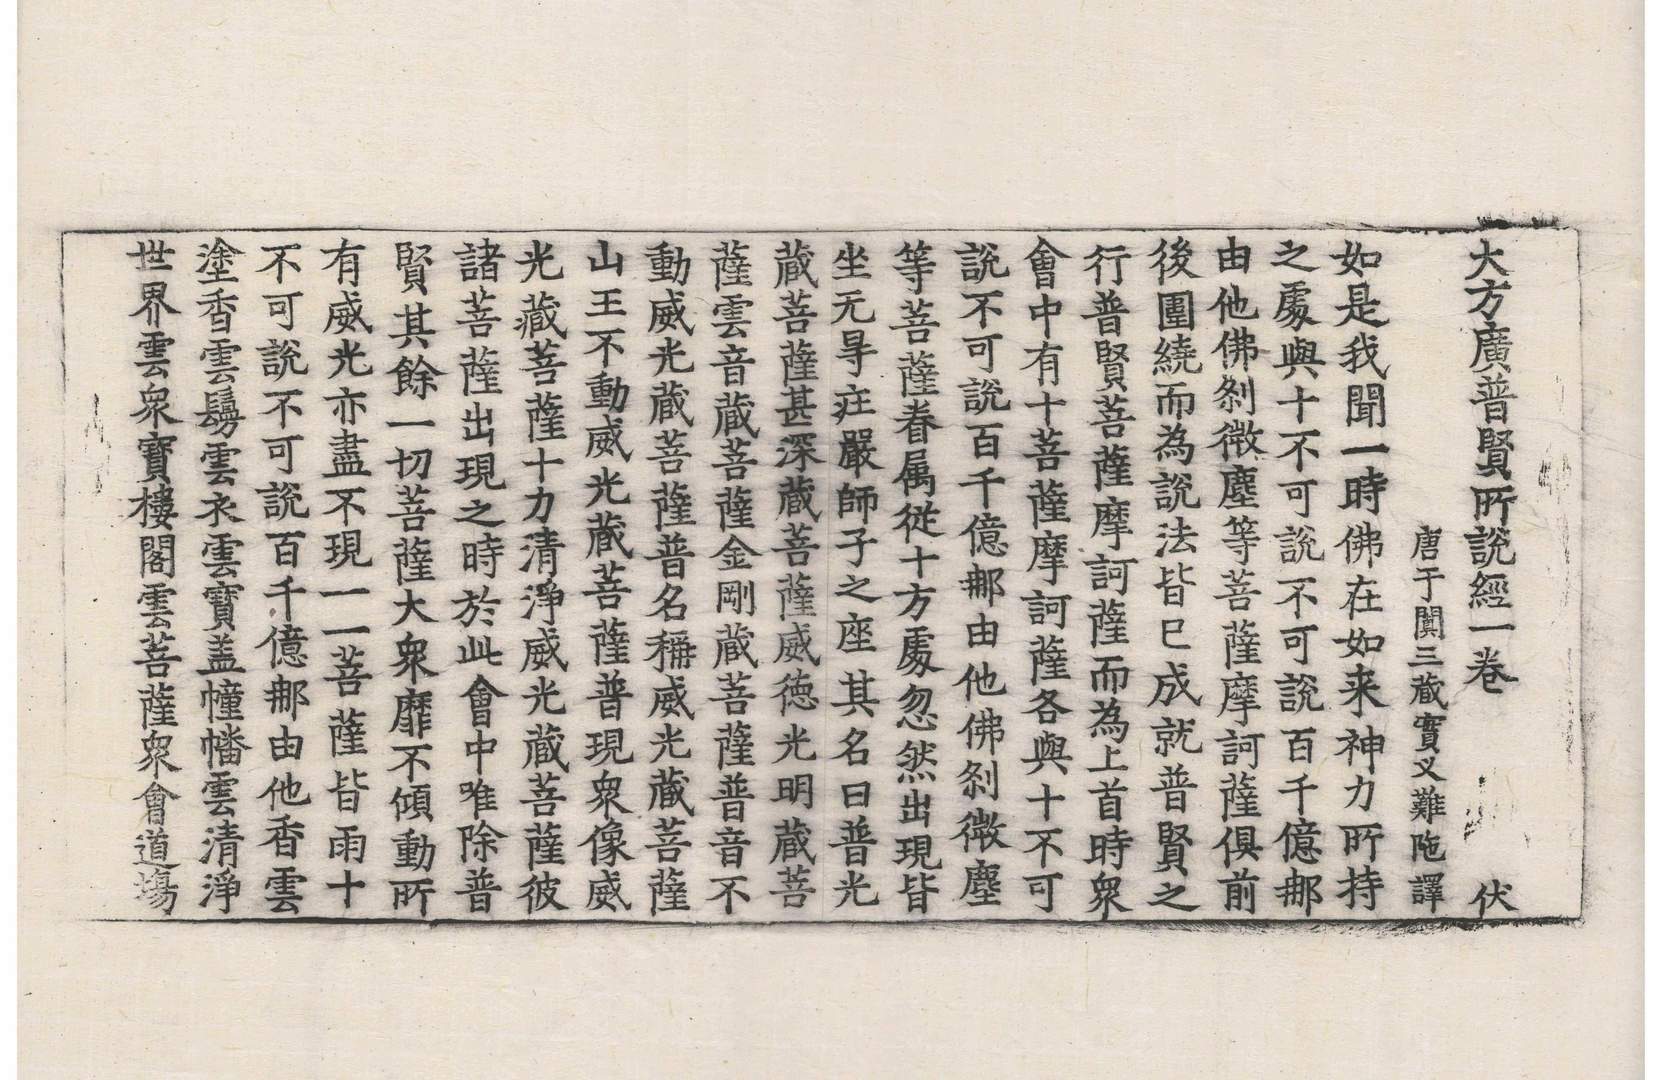 大方廣普賢所說經一卷 伏
唐于闐三藏實叉難陁譯
如是我聞一時佛在如来神力所持
之處與十不可說不可說百千億那
由他佛刹微塵等菩薩摩訶薩俱前
後圍繞而為說法皆已成就普賢之
行普賢菩薩摩訶薩而為上首時衆
會中有十菩薩摩訶薩各與十不可
說不可說百千億那由他佛刹微塵
等菩薩眷属從十方處忽然出現皆
坐无㝵庄嚴師子之座其名曰普光
藏菩薩甚深藏菩薩威徳光明藏菩
薩雲音藏菩薩金剛藏菩薩普音不
動威光藏菩薩普名稱威光藏菩薩
山王不動威光藏菩薩普現衆像威
光藏菩薩十力清淨威光藏菩薩彼
諸菩薩出現之時於此會中唯除普
賢其餘一切菩薩大衆靡不傾動所
有威光亦盡不現一一菩薩皆雨十
不可說不可說百千億那由他香雲
塗香雲鬘雲衣雲寶盖幢幡雲清淨
世界雲衆寶樓閣雲菩薩衆會道塲